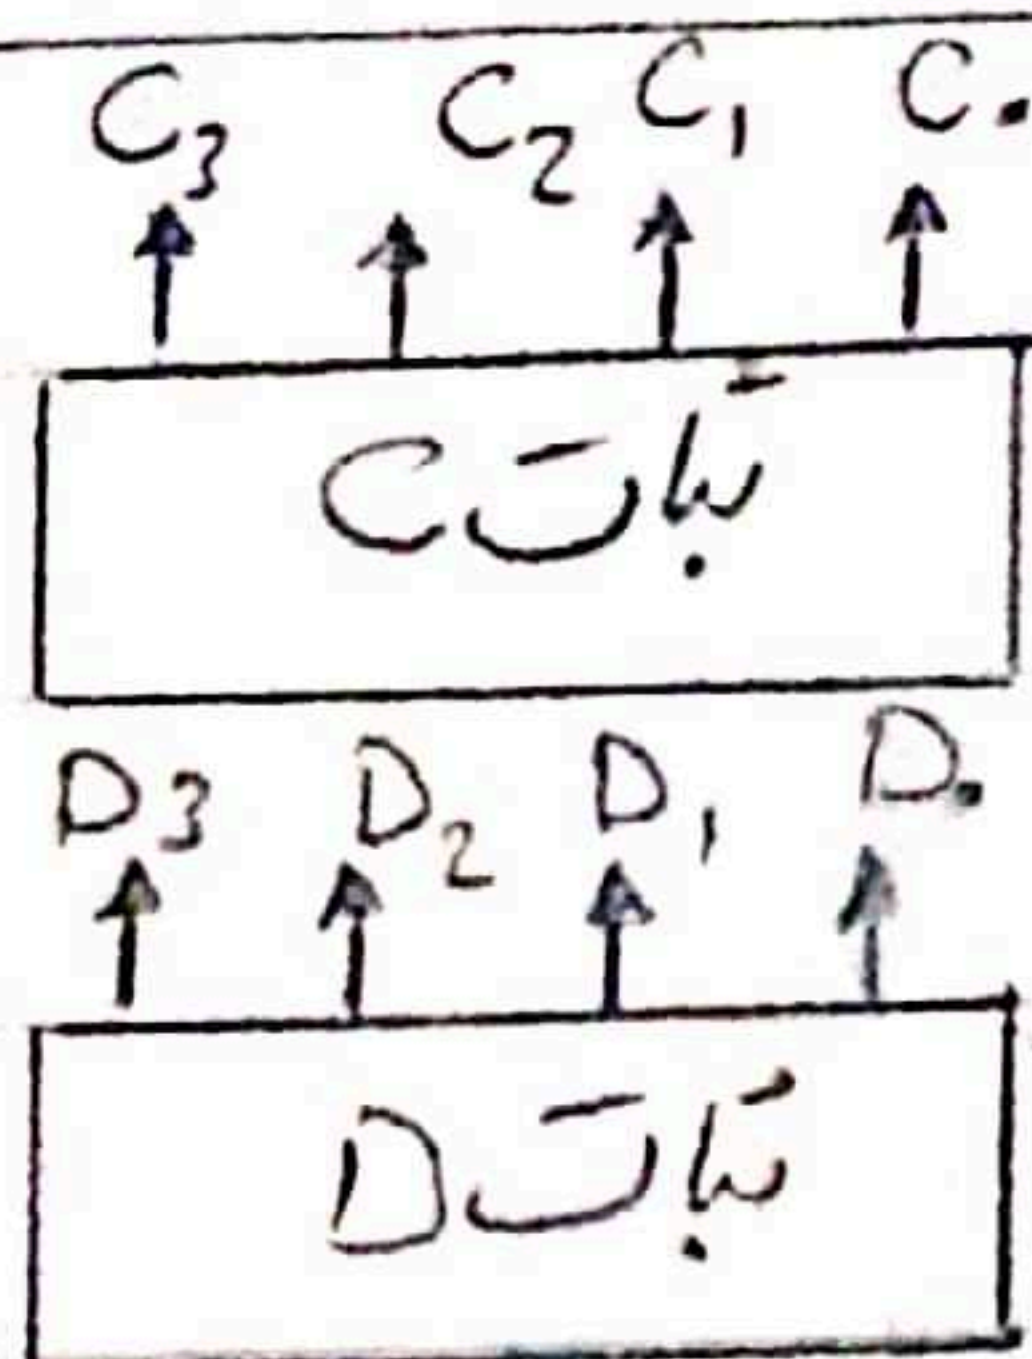 C₃ C₂ C₁ C.
تبات C
D₃ D₂ D₁ D.
تبات D